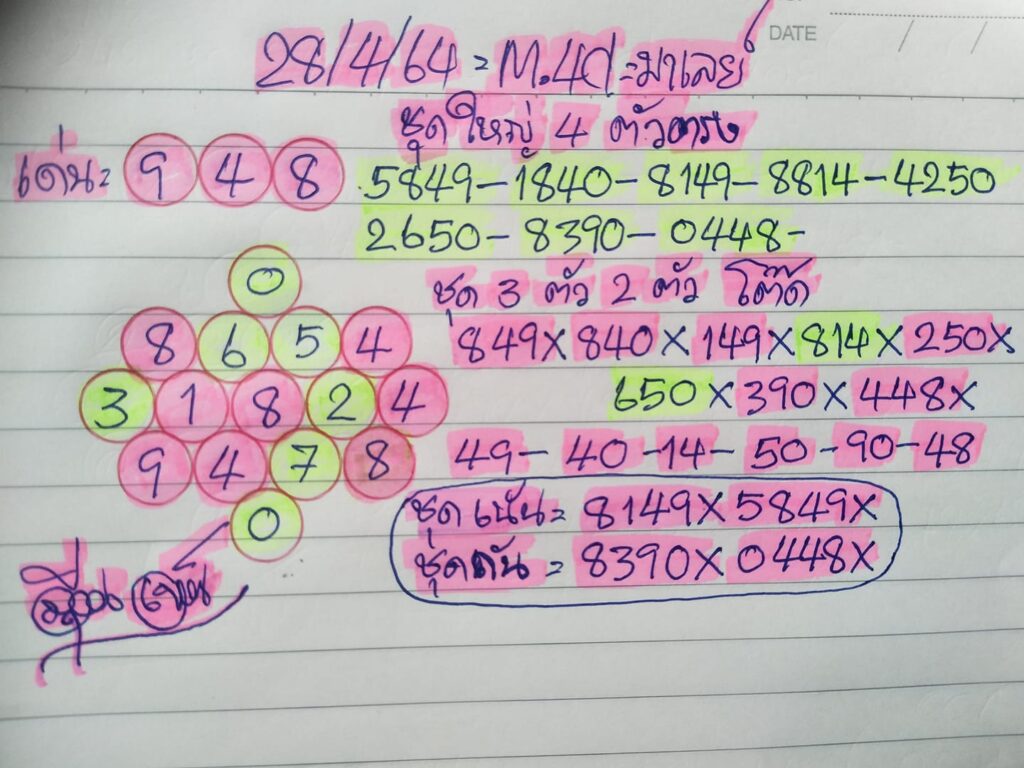 DATE / /
28/4/64 = M.4d = มาเลย์
ชุดใหญ่ 4 ตัวตรง
เด่น= 9 4 8
5849-1840-8149-8814-4250
2650-8390-0448-
ชุด 3 ตัว 2 ตัว โต๊ด
0
8 6 5 4
849X 840X 149X 814X 250X
3 1 8 2 4
650X 390X 448X
9 4 7 8
49- 40-14- 50-90-48
0
ชุดเน้น= 8149X 5849X
ชุดดัน= 8390X 0448X